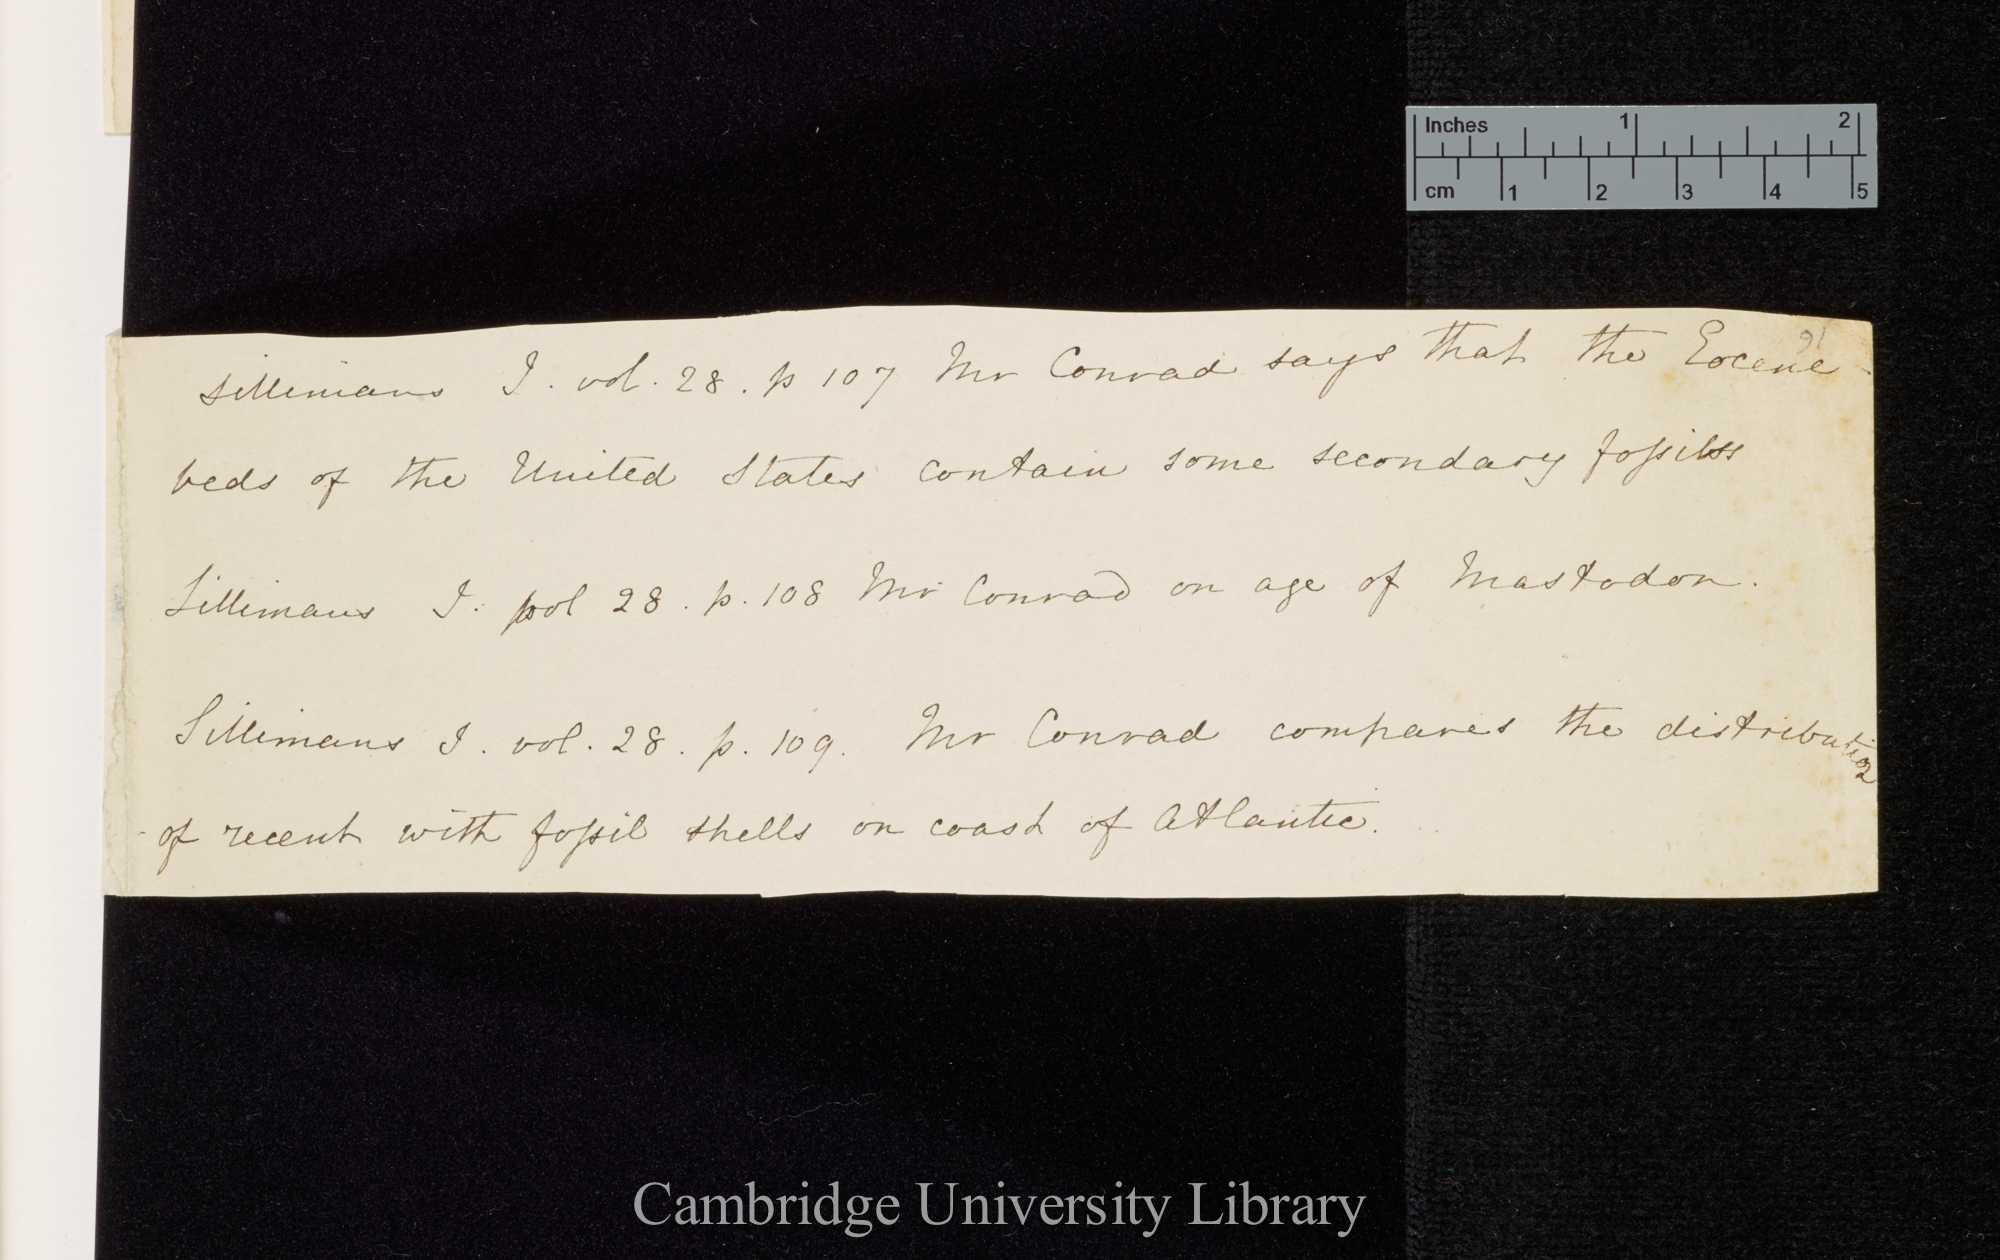 Inches 1 2
cm 1 2 3 4 5
91
Sillimans J. vol. 28. p 107 Mr Conrad says that the Eocene
beds of the United States contain some secondary fossils
Sillimans J. vol 28. p. 108 Mr Conrad on age of Mastodon.
Sillimans J. vol. 28. p. 109. Mr Conrad compares the distribution
of recent with fossil shells on coast of Atlantic.
Cambridge University Library